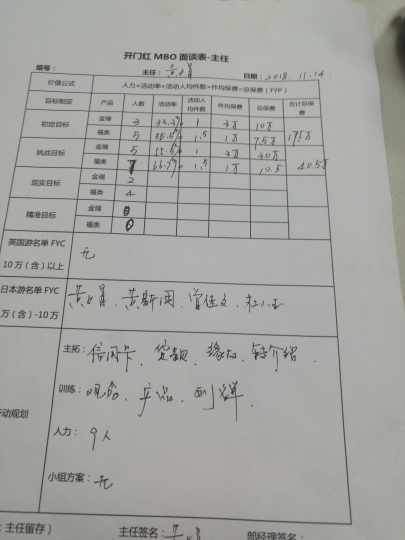 开门红 MBO 面谈表-主任
编号： 主任： 日期：2018.11.14
价值公式 人力×活动率×活动人均件数×件均保费=总保费（FYP）
目标制定 产品 人数 活动率 活动人均件数 件均保费 总保费 合计总保费
初定目标 金瑞 3 33.3% 1 3万 10万 17.5万
福类 5 55.5% 1.5 1万 7.5万
挑战目标 金瑞 5 55.5% 1 3万 30万 40.5万
福类 7 66.7% 1.5 1万 10.5
现实目标 金瑞 2
福类 4
精准目标 金瑞 0
福类 0
英国游名单 FYC
10 万（含）以上 无
日本游名单 FYC
万（含）-10 万
主拓：信用卡、贷款、缘故、转介绍.
训练：观念、产说、
动规划
人力：9人
小组方案：无
：主任留存） 主任签名： 部经理签名：